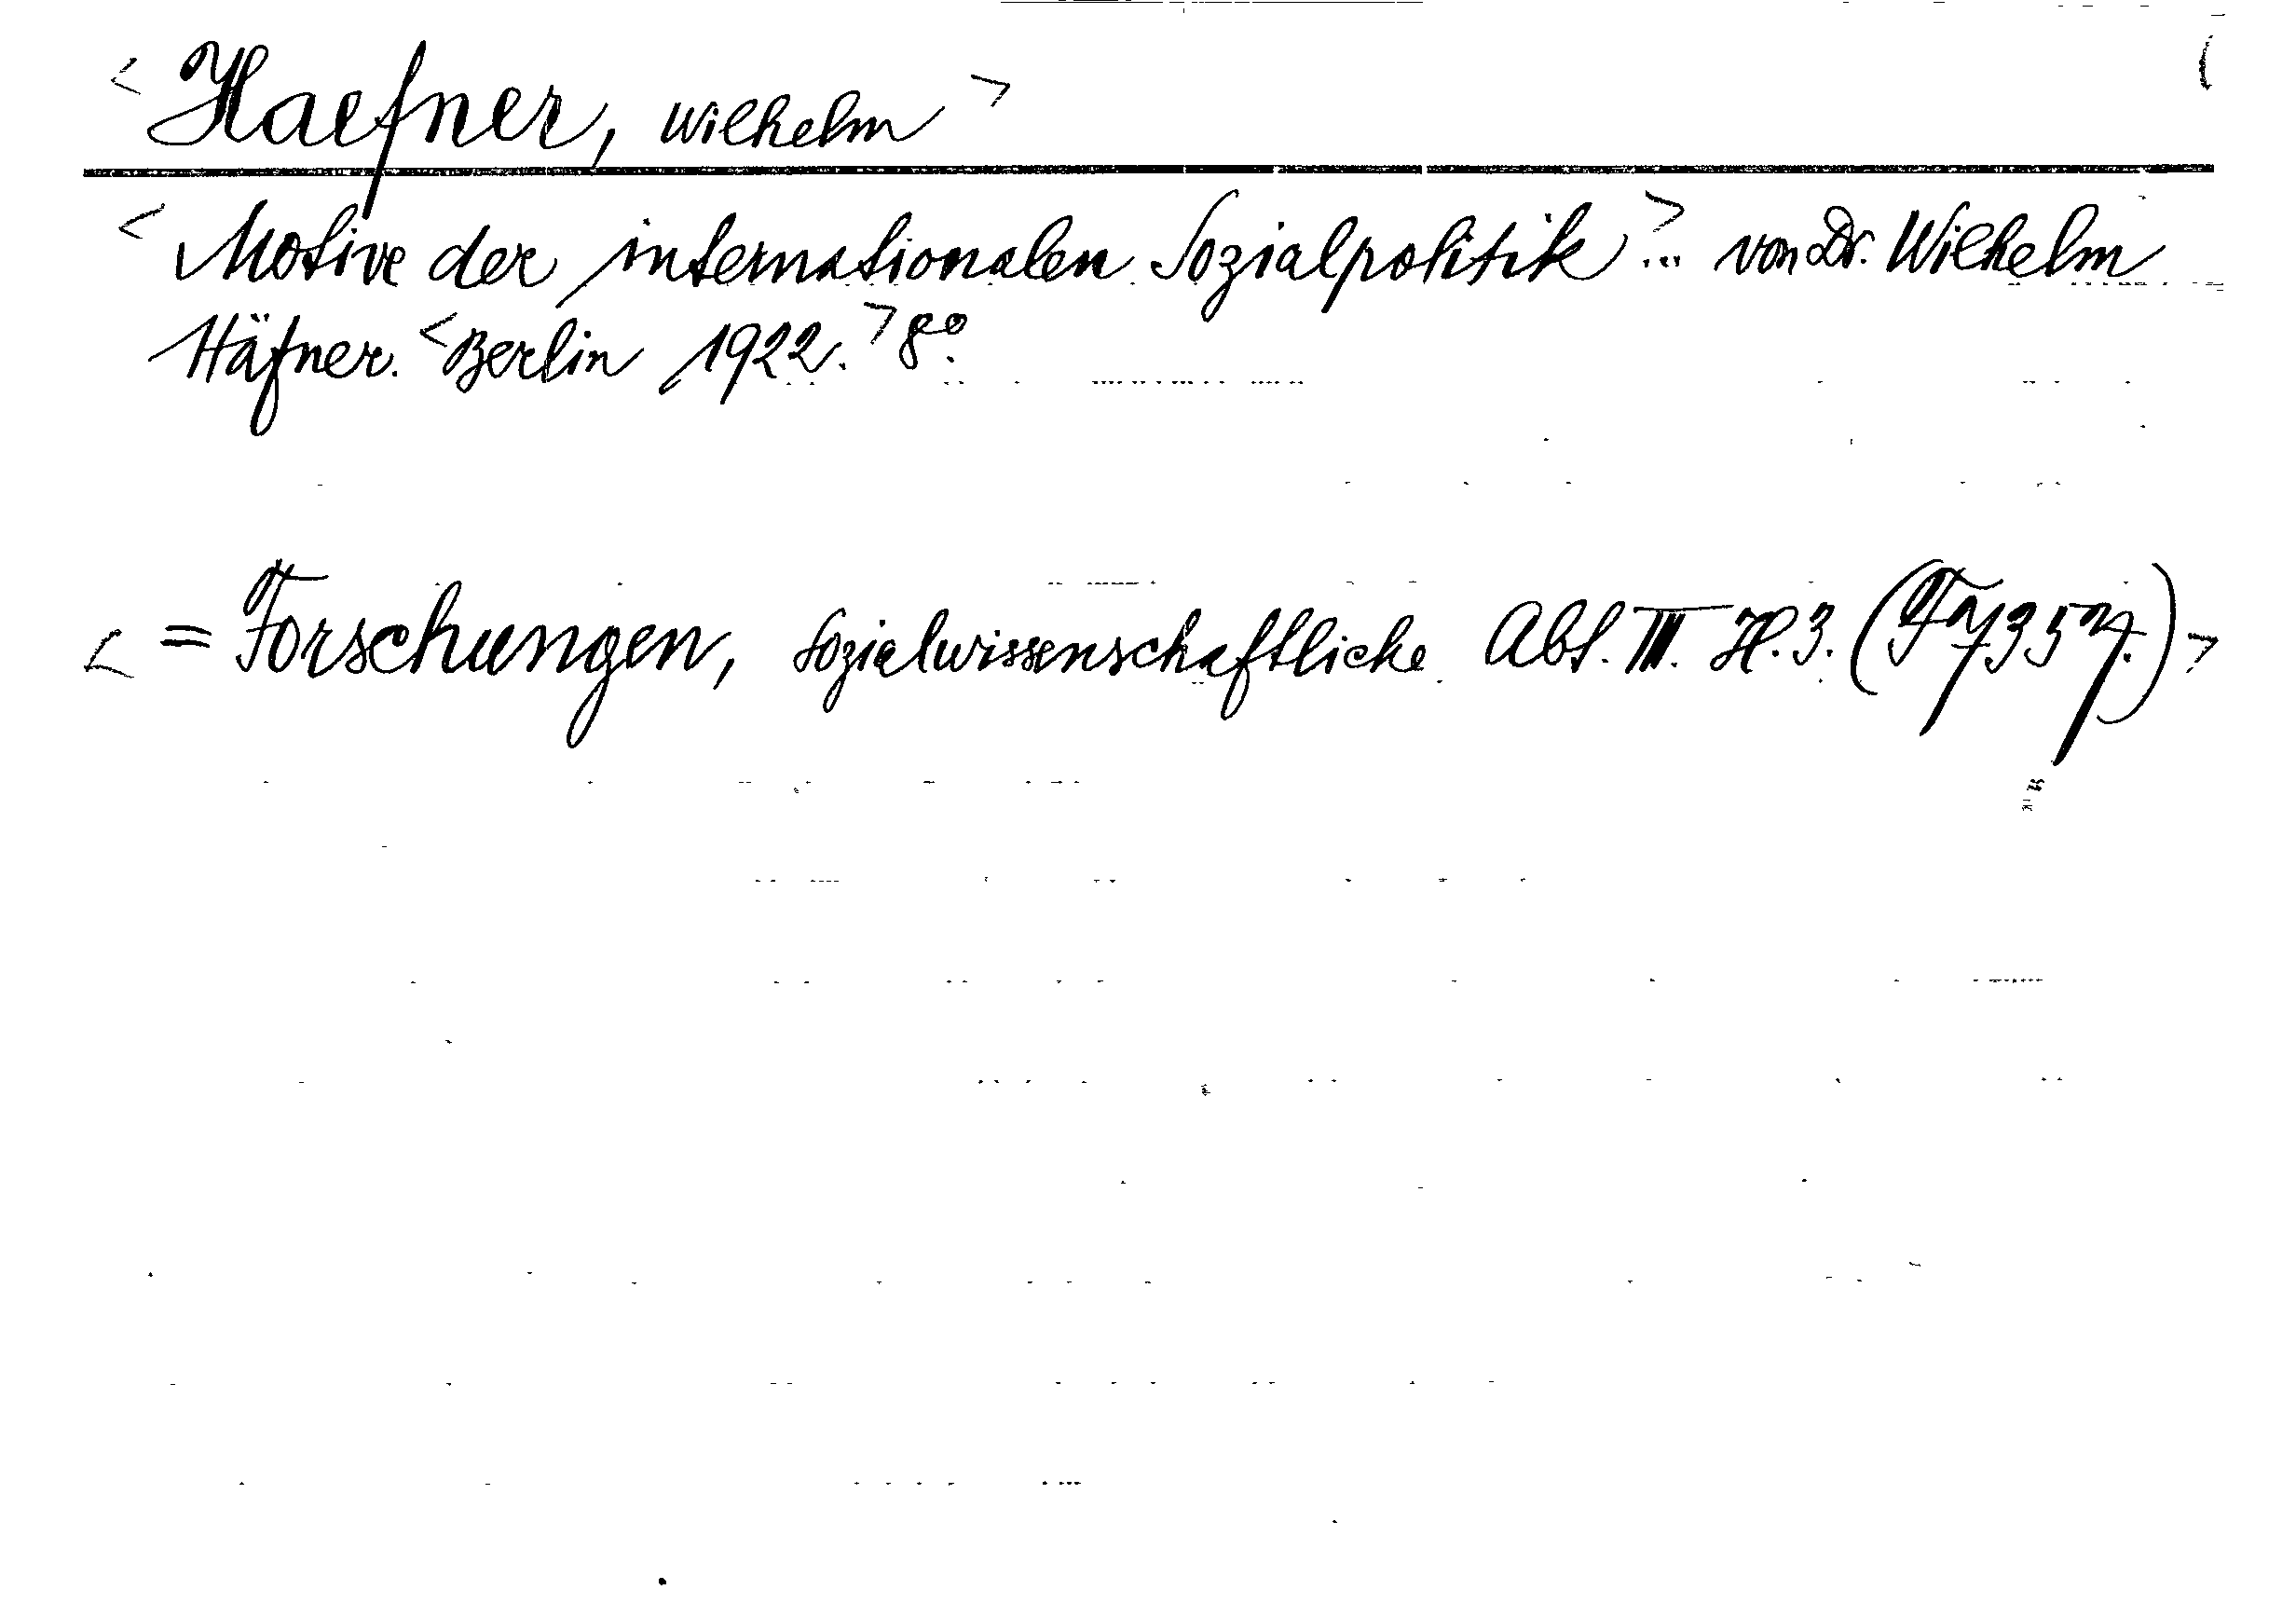 < Haefner, Wilhelm >
< Motive der internationalen Sozialpolitik > ... von Dr. Wilhelm
Häfner. < Berlin 1922. > 8°.
< = Forschungen, Sozialwissenschaftliche Abt. III. H. 3. (Fy 357.) >